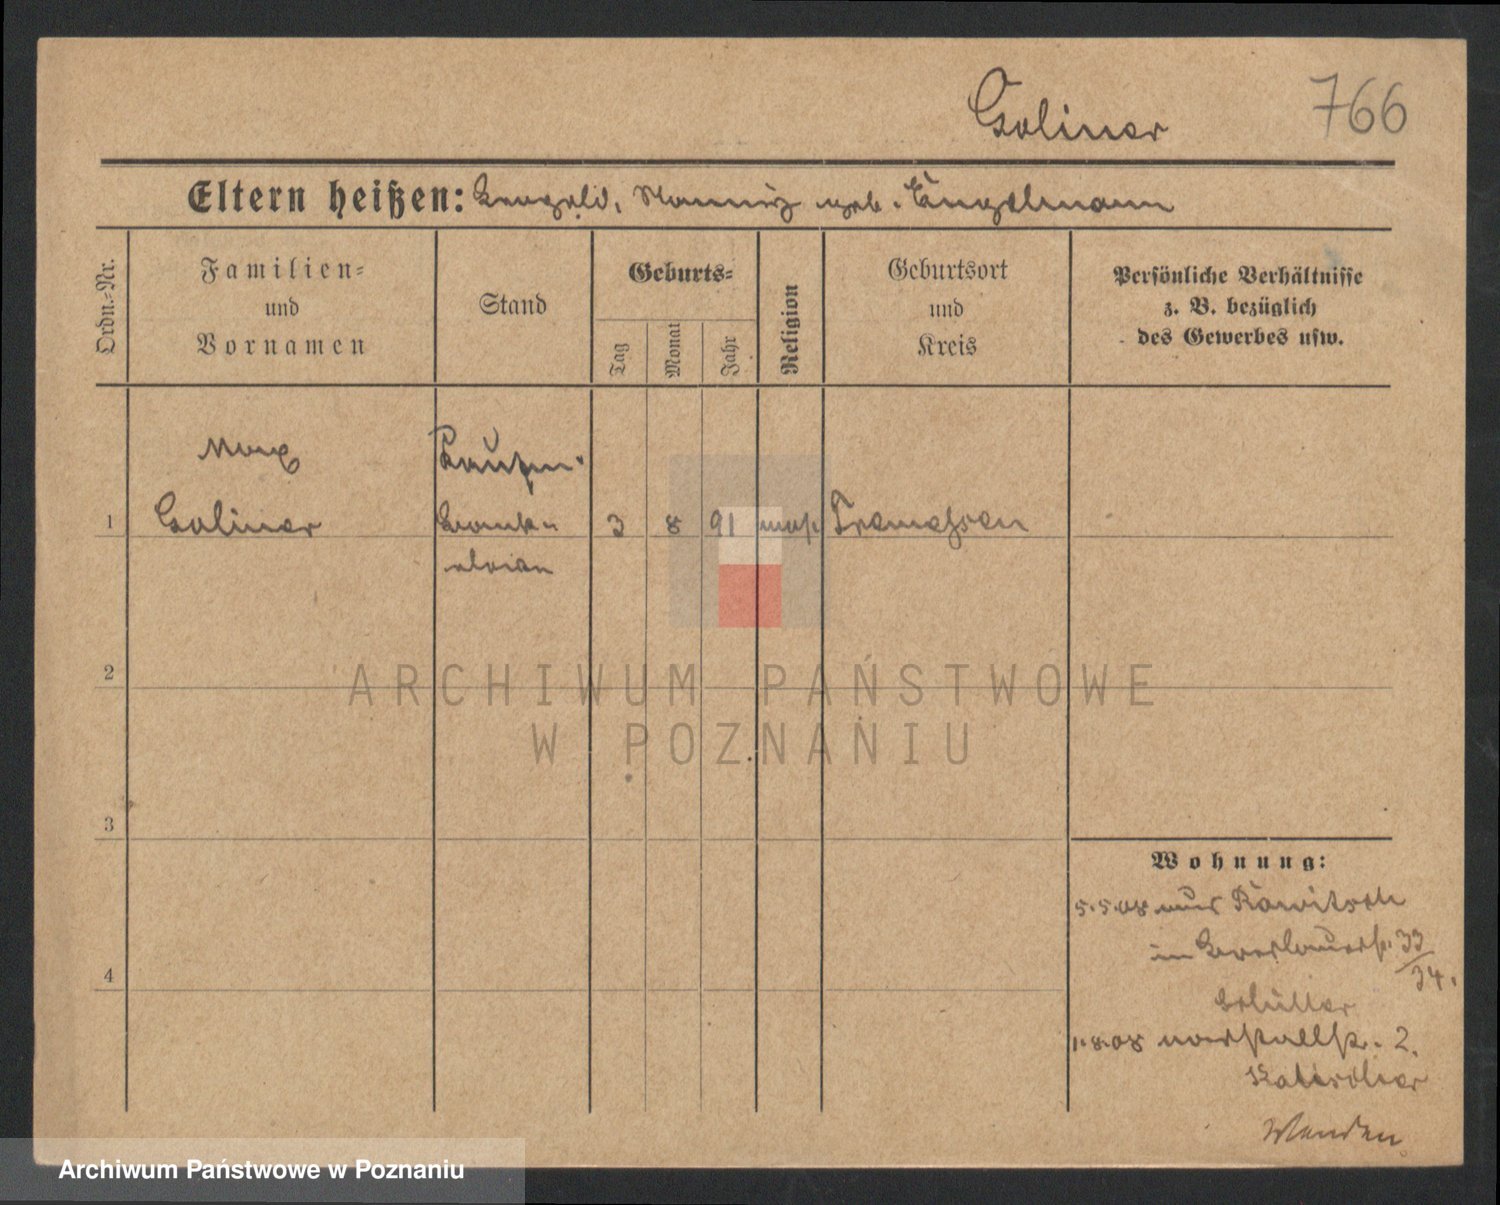 Goliner 766
Eltern heißen: geb. Engelmann
Ordn.=Nr.
Familien=
und
Vornamen
Stand
Geburts=
Tag
Monat
Jahr
Religion
Geburtsort
und
Kreis
Persönliche Verhältnisse
z. B. bezüglich
des Gewerbes usw.
Max
1 Goliner 3 8 91 mos. Tremessen
2
3
4
Wohnung:
5.5.08 aus Rawitsch
in Breslauerstr. 33/34.
1.8.08 2.
Wenden
ARCHIWUM PAŃSTWOWE
W POZNANIU
Archiwum Państwowe w Poznaniu